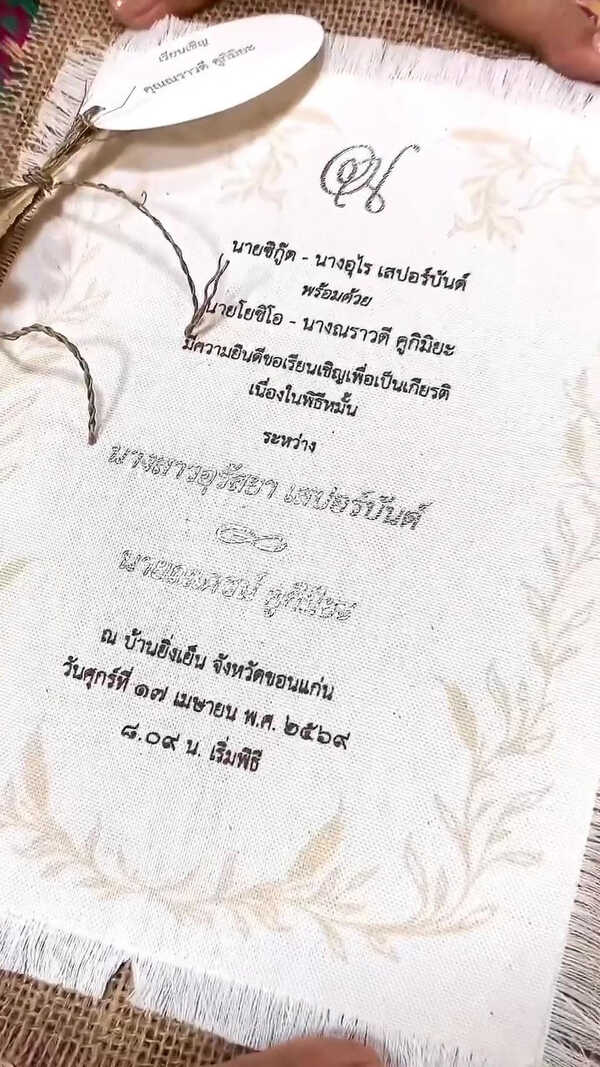 เรียนเชิญ
คุณณราวดี คูกิมิยะ
ณ
นายซิกู๊ด - นางอุไร เสปอร์บันด์
พร้อมด้วย
นายโยชิโอ - นางณราวดี คูกิมิยะ
มีความยินดีขอเรียนเชิญเพื่อเป็นเกียรติ
เนื่องในพิธีหมั้น
ระหว่าง
นางสาวอุรัสยา เสปอร์บันด์
คูกิมิยะ
ณ บ้านยิ่งเย็น จังหวัดขอนแก่น
วันศุกร์ที่ ๑๗ เมษายน พ.ศ. ๒๕๖๙
๘.๐๙ น. เริ่มพิธี